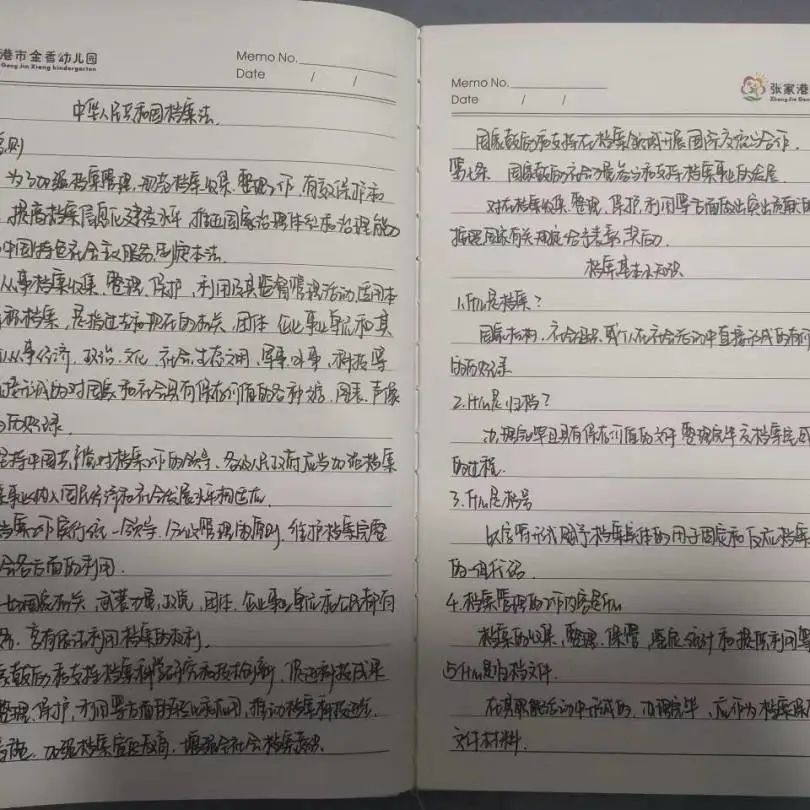 港市金香幼儿园
Gang Jin Xiang kindergarten
Memo No.
Date / /
中华人民共和国档案法
总则
为了加强档案管理,规范档案收集、整理工作,有效保护和
提高档案信息化建设水平,推进国家治理体系和治理能力
中国特色社会主义服务,制定本法.
从事档案收集、整理、保护、利用及其监督管理活动,适用本
称档案,是指过去和现在的机关、团体、企业事业单位和其
从事经济、政治、文化、社会、生态文明、军事、外事、科技等
形成的对国家和社会具有保存价值的各种文字、图表、声像
历史记录.
坚持中国共产党对档案工作的领导.各级人民政府应当加强档案
案事业纳入国民经济和社会发展
档案工作实行统一领导、分级管理的原则,维护档案完整
会各方面的利用.
一切国家机关、武装力量、政党、团体、企业事业单位和公民都有
务,享有依法利用档案的权利.
家鼓励和支持档案科学研究和技术创新,促进科技成果
整理、保护、利用等方面的转化和应用,推动档案科技进步.
措施,加强档案宣传教育,增强全社会档案意识.
Memo No.
Date / /
张家港
国家鼓励和支持在档案领域开展国际交流与合作.
第七条 国家鼓励社会力量参与和支持档案事业的发展
对在档案收集、整理、保护、利用等方面做出突出贡献的
按照国家有关规定给予表彰、奖励.
档案基本小知识
1.什么是档案?
国家机构、社会组织或个人在社会活动中直接形成的有价
的历史记录
2.什么是归档?
办理完毕且具有保存价值的文件整理完毕交档案室
的过程.
3.什么是档号
以字符形式赋予档案实体的用于固定和反应档案
的一组代码.
4.档案管理的工作内容是什么
档案的收集、整理、保管、鉴定、统计和提供利用等
5.什么是归档文件.
在其职能活动中形成的、办理完毕、应作为档案保
文件材料.